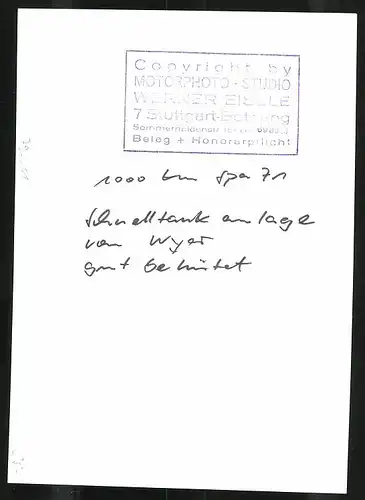 Copyright by
MOTORPHOTO - STUDIO
WERNER EISELE
7 Stuttgart-Botnang
Beleg + Honorarpflicht
1000 km Spa 71
Schnelltankanlage
von Wyer
gut behütet